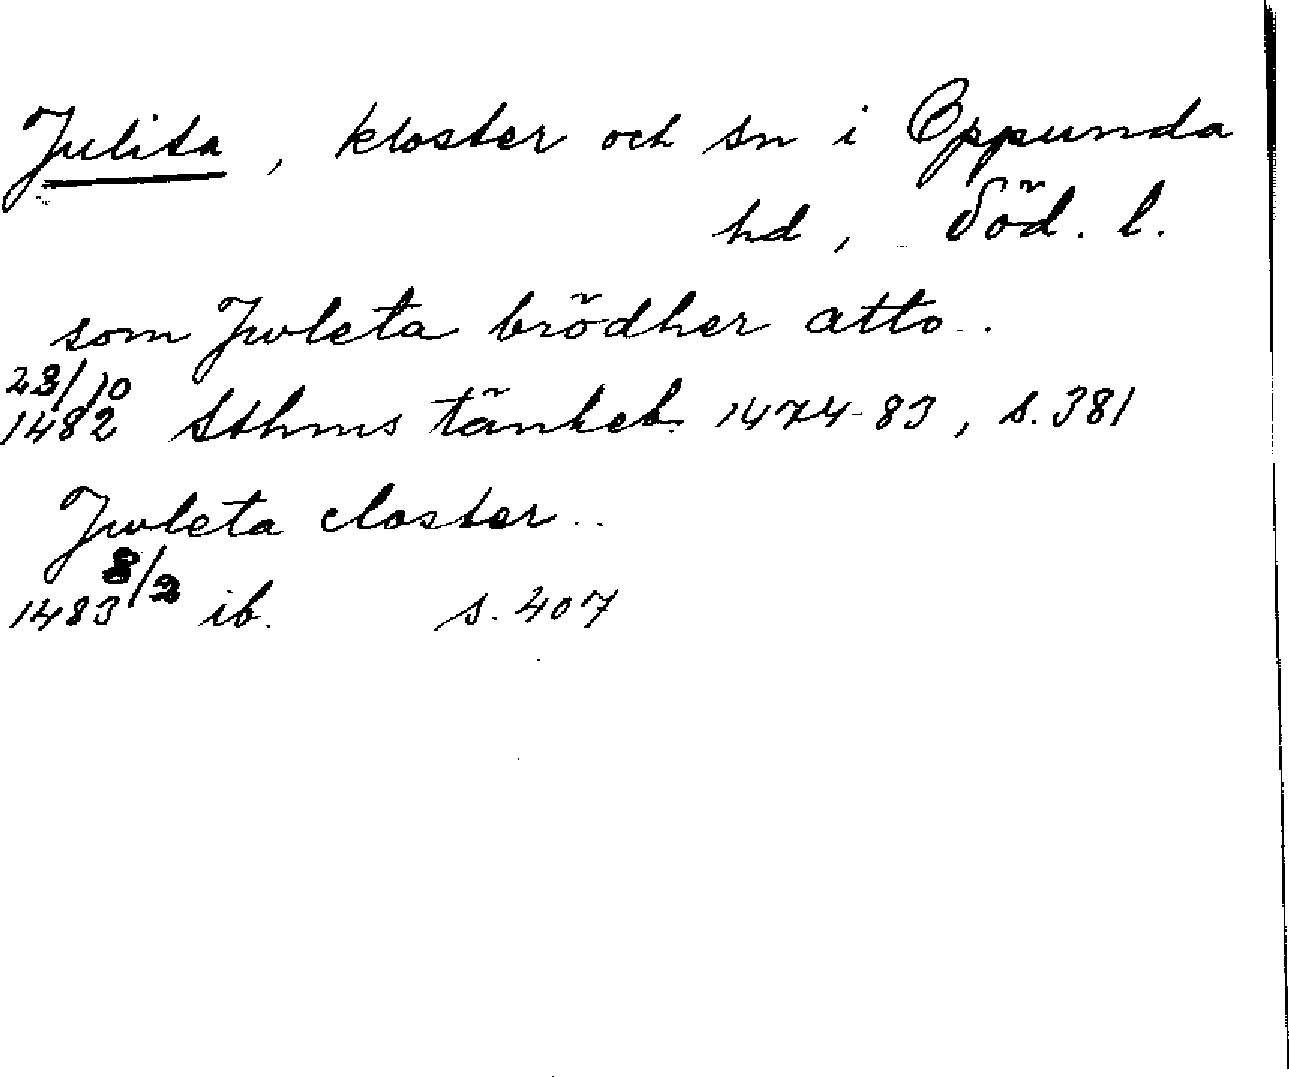 Julita, kloster och sn i Oppunda
hd, Söd. l.
som Jwleta brödher atto..
23/10
1482 Sthms tänkeb. 1474-83, s. 381
Jwleta closter..
1483 8/2 ib. s. 407